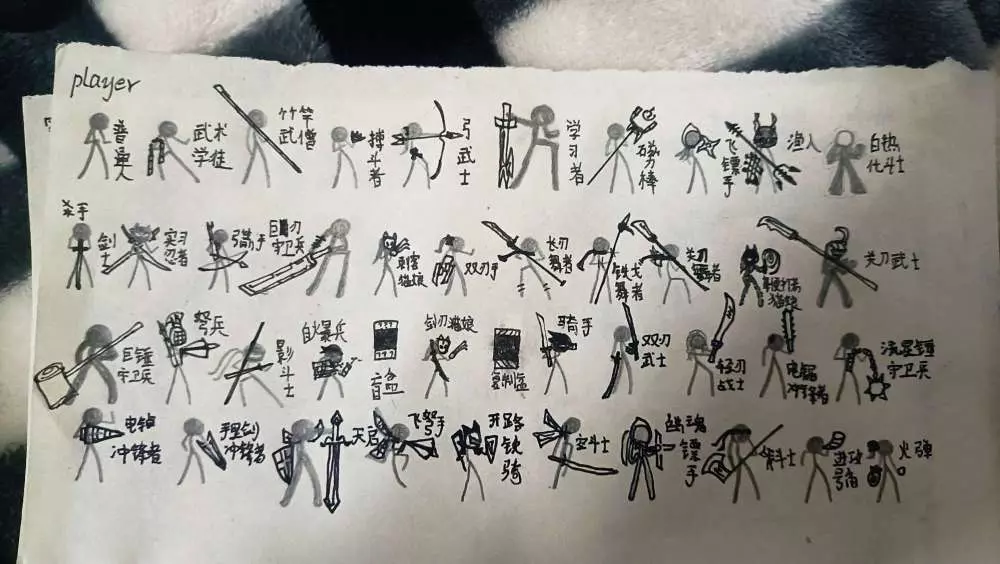 player
普通人
武术学徒
竹竿武僧
搏斗者
弓武士
学习者
磁力棒
飞镖手
渔人
白热化斗士
杀手
剑士
实习忍者
弓箭手
巨刃守卫兵
刺客猫娘
双刃手
长刃舞者
铁戈舞者
关刀舞者
猫娘
关刀武士
巨锤守卫兵
弩兵
影斗士
自爆兵
盲盒
剑刃猫娘
复制盒
骑手
双刃武士
轻刃战士
电锯冲锋者
流星锤守卫兵
电钻冲锋者
手里剑冲锋者
天启
飞弩手
开路铁骑
空斗士
幽魂镖手
斧斗士
进攻号角
火弹